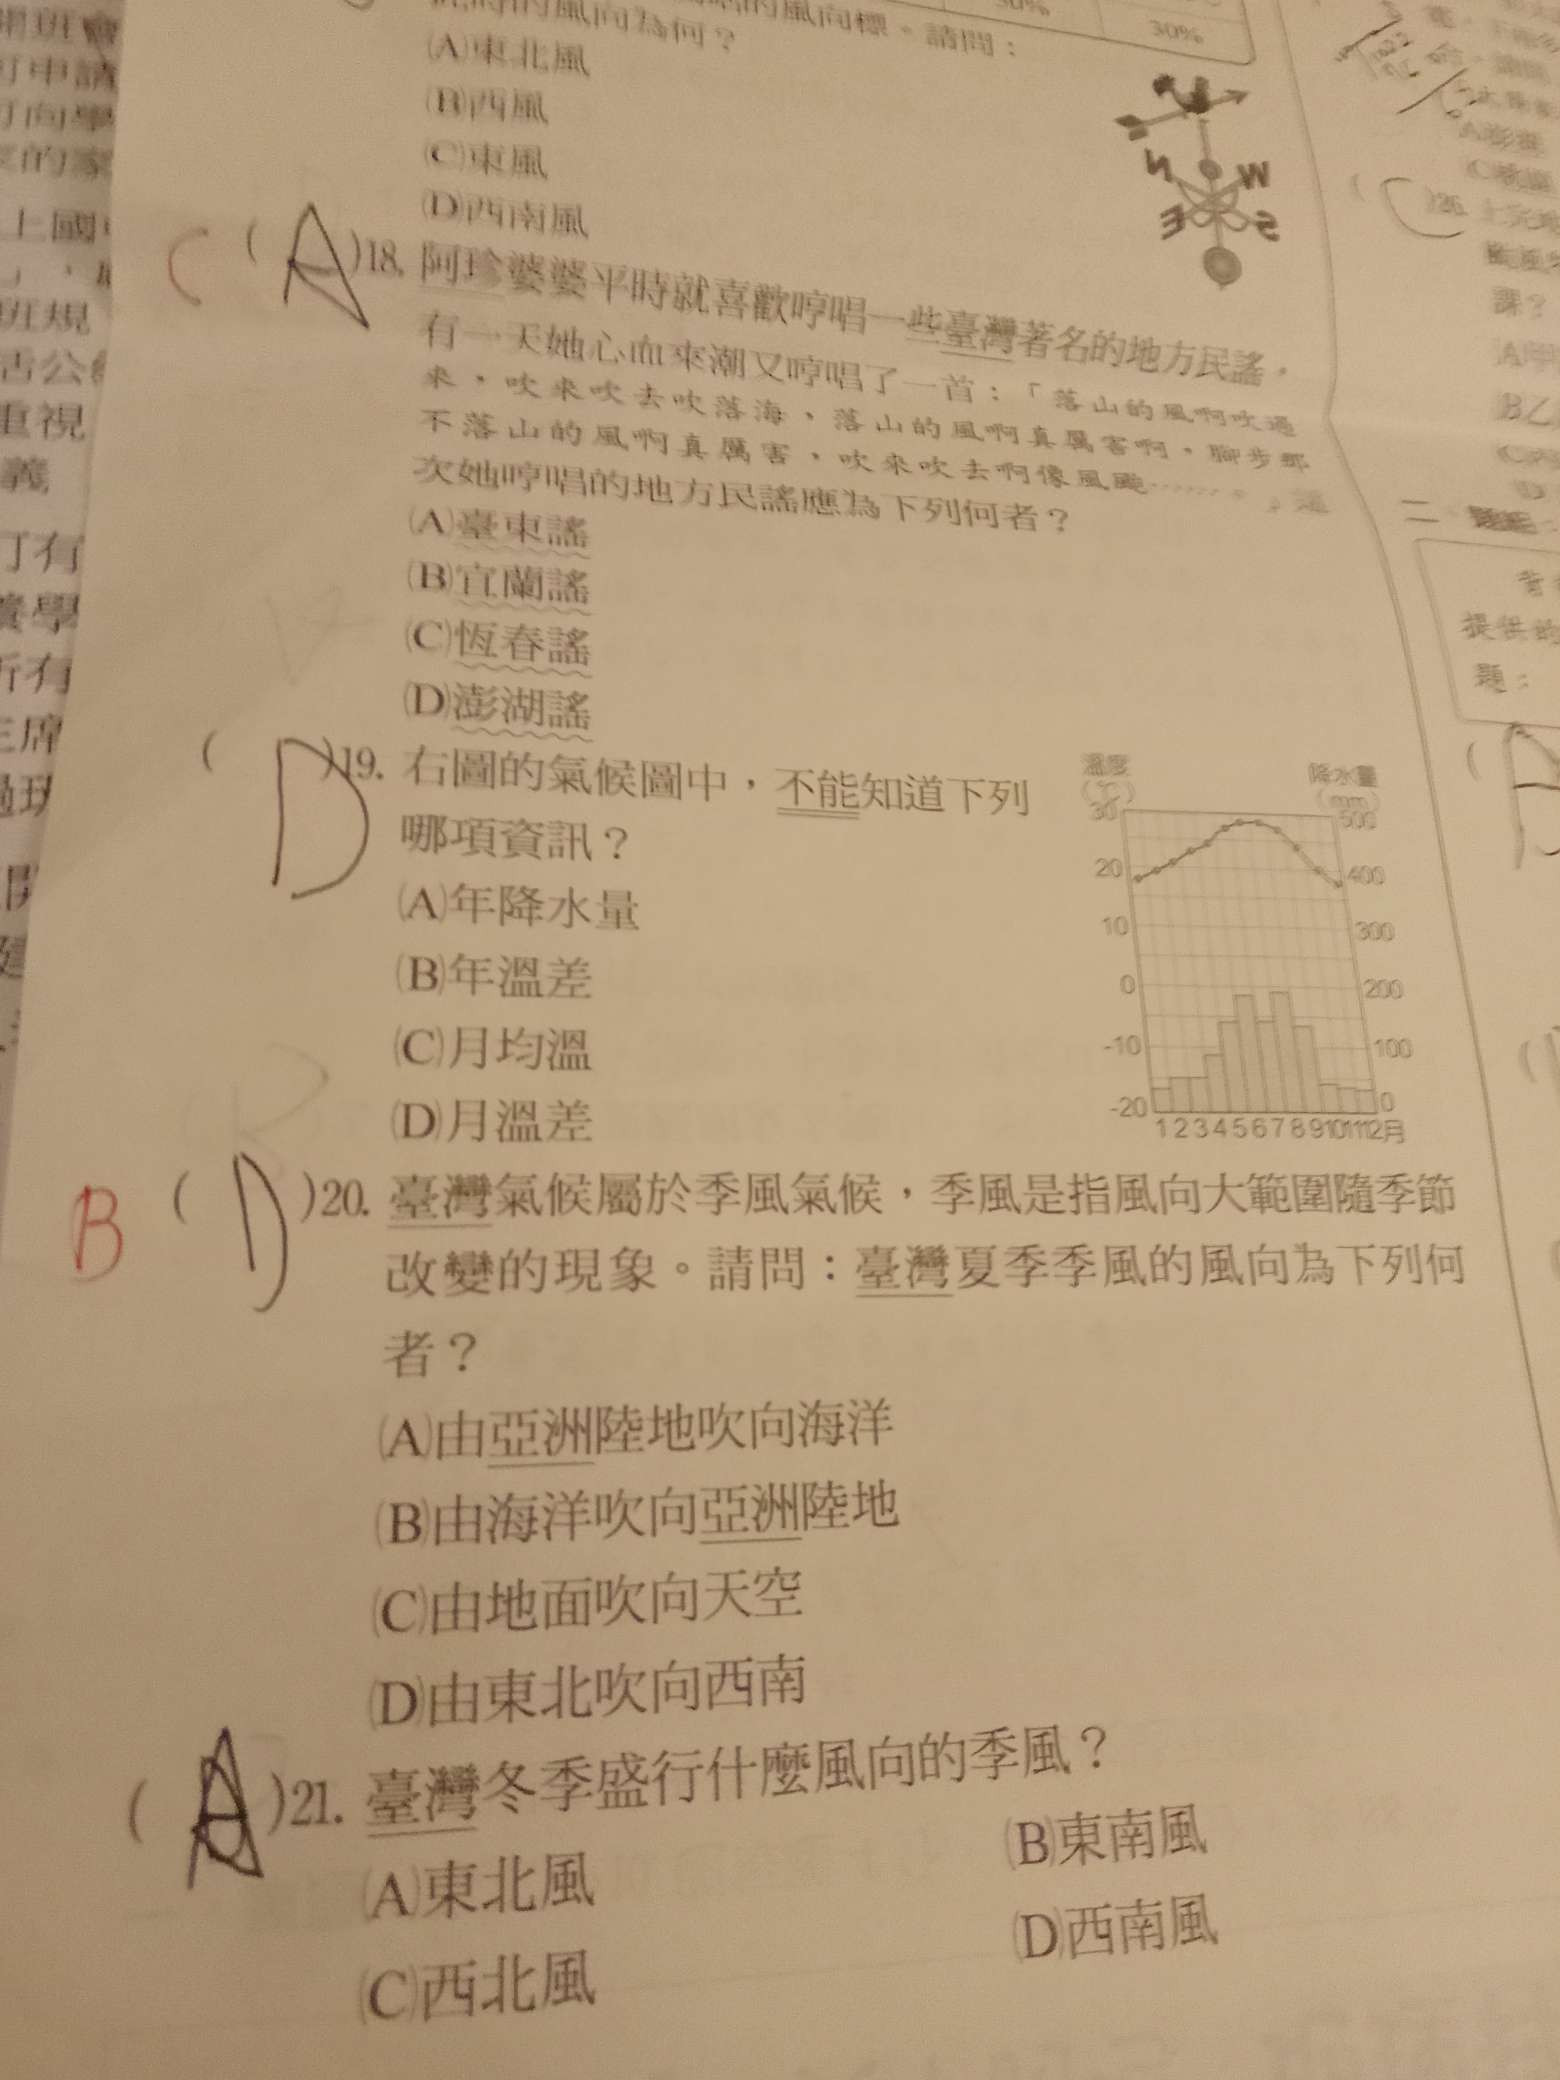 風向標。請問:
風向為何?
30%
(A)東北風
(B)西風
(C)東風
(D)西南風
N
W
E
S
C
(A)18. 阿珍婆婆平時就喜歡哼唱一些臺灣著名的地方民謠,
有一天她心血來潮又哼唱了一首:「落山的風啊吹過
來,吹來吹去吹落海,落山的風啊真厲害啊,腳步那
不落山的風啊真厲害,吹來吹去啊像風颱……。」這
次她哼唱的地方民謠應為下列何者?
(A)臺東謠
(B)宜蘭謠
(C)恆春謠
(D)澎湖謠
(D)19. 右圖的氣候圖中,不能知道下列
哪項資訊?
(A)年降水量
(B)年溫差
(C)月均溫
(D)月溫差
溫度
(℃)
降水量
(mm)
30
500
20
400
10
300
0
200
-10
100
-20
0
1 2 3 4 5 6 7 8 9 10 11 12月
B
(D)20. 臺灣氣候屬於季風氣候,季風是指風向大範圍隨季節
改變的現象。請問:臺灣夏季季風的風向為下列何
者?
(A)由亞洲陸地吹向海洋
(B)由海洋吹向亞洲陸地
(C)由地面吹向天空
(D)由東北吹向西南
(A)21. 臺灣冬季盛行什麼風向的季風?
(A)東北風
(B)東南風
(C)西北風
(D)西南風
可申請
可向學
的家
上國
班規
重視
義
可有
所有
主席
(C)26.
課?
二
提供的
題: